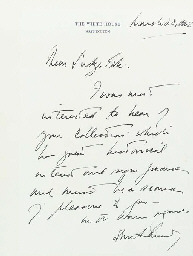 THE WHITE HOUSE
WASHINGTON
Dear Judge
I was most
interested to hear of
your collection which
has great historical
interest and significance
and must be a source
of pleasure to you